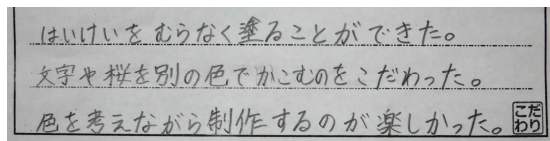 はいけいを むらなく塗ることができた。
文字や桜を別の色でかこむのをこだわった。
色を考えながら制作するのが楽しかった。
こだわり